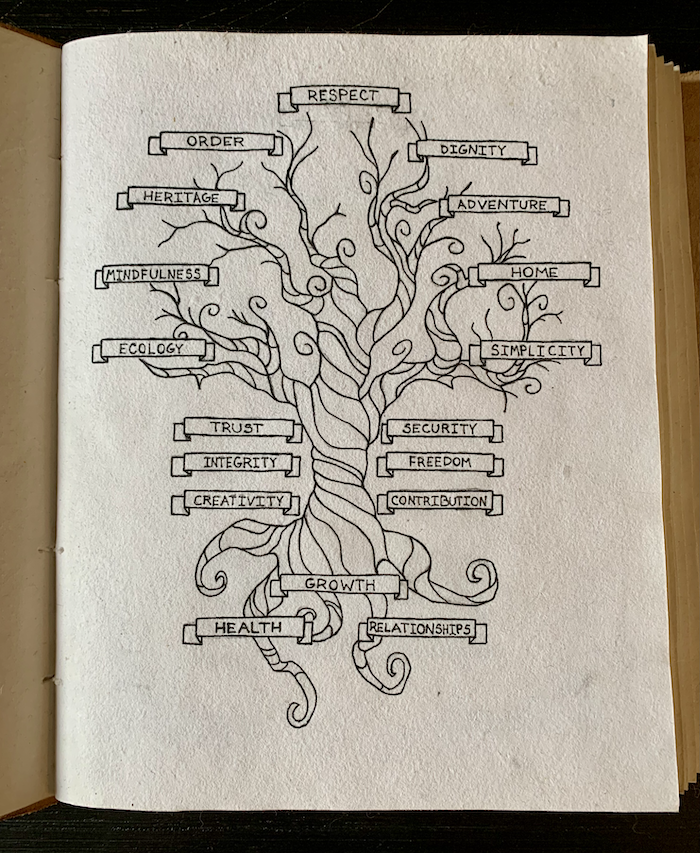 RESPECT
ORDER
DIGNITY
HERITAGE
ADVENTURE
MINDFULNESS
HOME
ECOLOGY
SIMPLICITY
TRUST
SECURITY
INTEGRITY
FREEDOM
CREATIVITY
CONTRIBUTION
GROWTH
HEALTH
RELATIONSHIPS